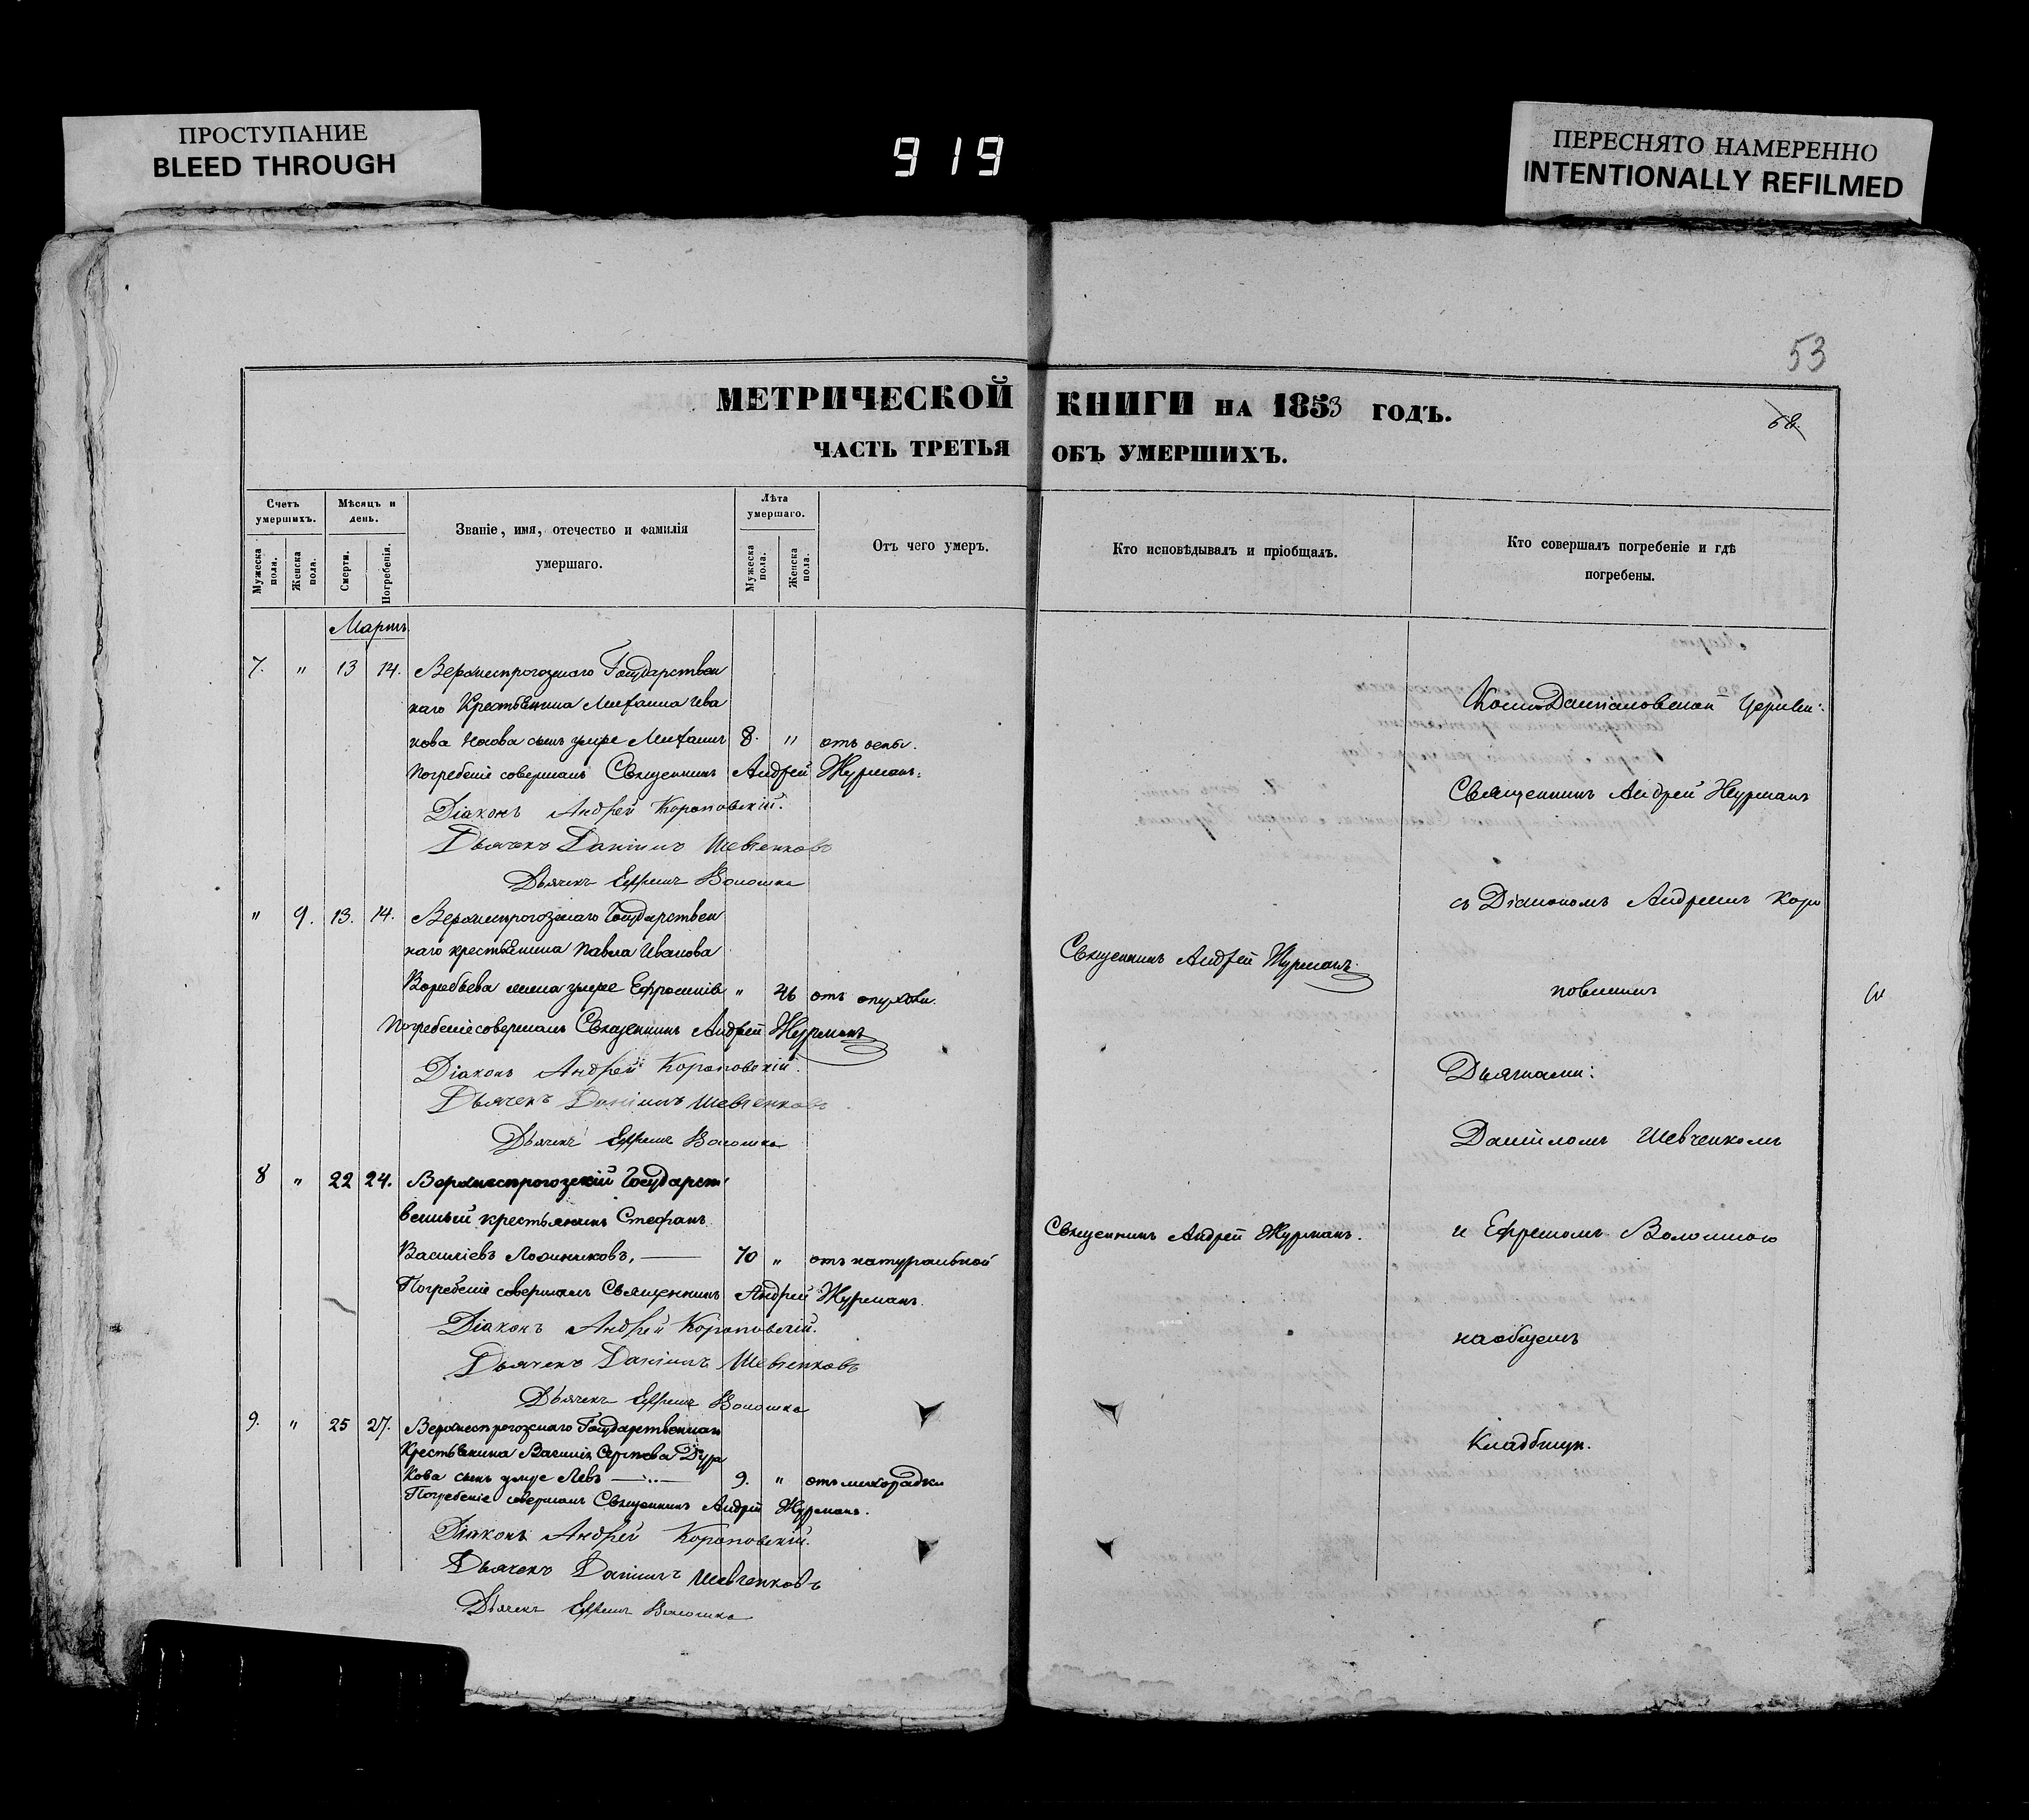 ПРОСТУПАНИЕ
BLEED THROUGH
919
ПЕРЕСНЯТО НАМЕРЕННО
INTENTIONALLY REFILMED
53
МЕТРИЧЕСКОЙ КНИГИ НА 1853 ГОДЪ.
68.
ЧАСТЬ ТРЕТЬЯ ОБЪ УМЕРШИХЪ.
Счетъ умершихъ.
Мужеска пола.
Женска пола.
Мѣсяцъ и день.
Смерти.
Погребенія.
Званіе, имя, отечество и фамилія умершаго.
Лѣта умершаго.
Мужеска пола.
Женска пола.
Отъ чего умеръ.
Кто исповѣдывалъ и пріобщалъ.
Кто совершалъ погребеніе и гдѣ погребены.
Мартъ
7. " 13 14. Верхнесерогозскаго Государствен
наго Крестьянина Михаила Ива
нова сынъ умре Михаилъ 8. " отъ оспы.
Погребеніе совершалъ Священникъ Андрей Журманъ.
Діаконъ Андрей Короповскій.
Дьячекъ Даніилъ Шевченковъ
Дьячекъ Ефремъ Волошка
" 9. 13. 14. Верхнесерогозскаго Государствен
наго крестьянина Павла Иванова
Воробьева жена умре Ефросинія " 46 отъ опухоли.
Погребеніе совершалъ Священникъ Андрей Журманъ
Діаконъ Андрей Короповскій.
Дьячекъ Даніилъ Шевченковъ
Дьячекъ Ефремъ Волошка
8 " 22 24. Верхнесерогозскій Государст
венный крестьянинъ Стефанъ
Василіевъ 70 " отъ натуральной
Погребеніе совершалъ Священникъ Андрей Журманъ.
Діаконъ Андрей Короповскій.
Дьячекъ Даніилъ Шевченковъ
Дьячекъ Ефремъ Волошка
9. " 25 27. Верхнесерогозскаго Государственнаго
Крестьянина Василія Сергѣева Дура
кова сынъ умре Левъ 9. " отъ лихорадки
Погребеніе совершалъ Священникъ Андрей Журманъ.
Діаконъ Андрей Короповскій.
Дьячекъ Даніилъ Шевченковъ
Дьячекъ Ефремъ Волошка
Священникъ Андрей Журманъ.
Священникъ Андрей Журманъ.
Космо Даміановской Церкви:
Священникъ Андрей Журманъ
съ Діакономъ Андреемъ Коро
повскимъ
Дьячками:
Даніиломъ Шевченкомъ
и Ефремомъ Волошкою
на общемъ
Кладбищѣ.